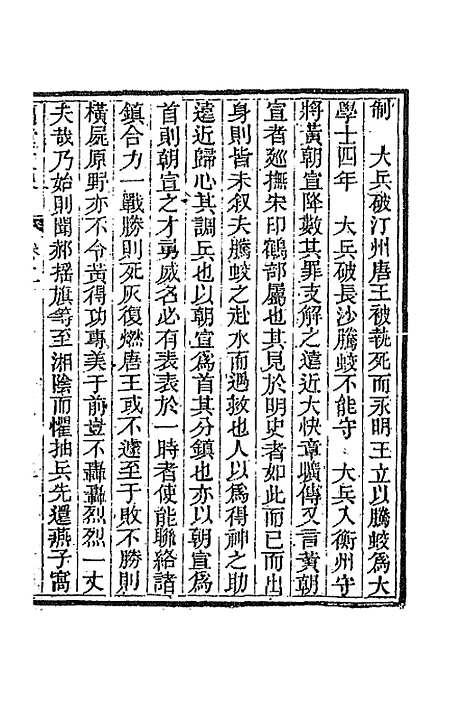 制　大兵破汀州唐王被執死而永明王立以騰蛟爲大
學士四年　大兵破長沙騰蛟不能守　大兵入衡州守
將黃朝宣降數其罪支解之遠近大快章曠傳又言黃朝
宣者廵撫宋印鶴部屬也其見於明史者如此而已而出
身則皆未叙夫騰蛟之赴水而遇救也人以爲得神之助
遠近歸心其調兵也以朝宣爲首其分鎮也亦以朝宣爲
首則朝宣之才勇威名必有表表於一時者使能聯絡諸
鎮合力一戰勝則死灰復燃唐王或不遽至于敗不勝則
橫屍原野亦不令黃得功專美于前豈不轟轟烈烈一丈
夫哉乃始則聞郝搖旗等至湘陰而懼抽兵先還燕子窩